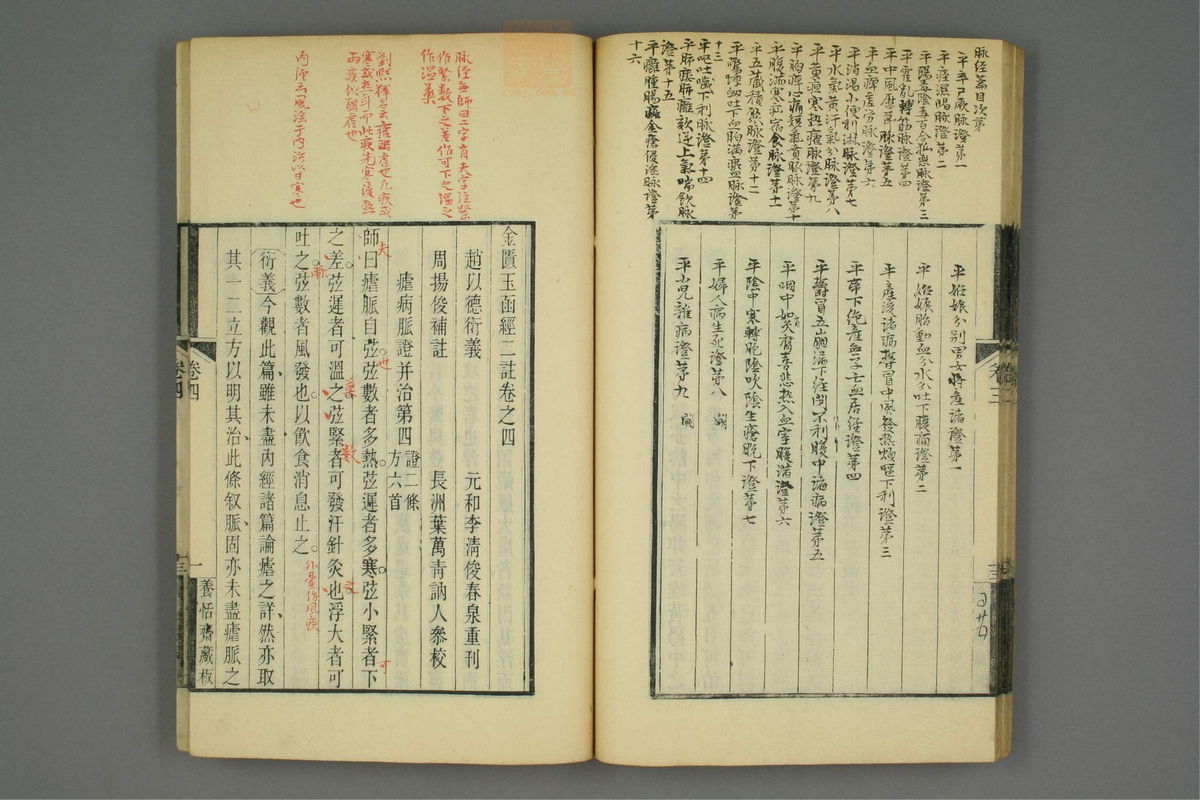 脉经篇目次第
平卒尸厥脉證第一
平痓濕暍脉證第二
平陽毒陰毒百合狐惑脉證第三
平霍亂轉筋脉證第四
平中風歷莭脉證第五
平血痺虛勞脉證第六
平消渴小便利淋脉證第七
平水氣黃汗氣分脉證第八
平黃疸寒热瘧脉證第九
平胸痺心痛短氣賁豚脉證第十
平腹滿寒疝宿食脉證第十一
平五藏積聚脉證第十二
平驚悸衂吐下血胸滿瘀血脉證第
十三
平嘔吐噦下利脉證第十四
平肺痿肺癰欬逆上氣喘飲脉
證第十五
平癰腫腸癰金瘡侵淫脉證第
十六
平姙娠分别男女將產諸證第一
平姙娠胎動血分水分吐下腹痛證第二
平產後諸病欝冒中風發热煩嘔下利證第三
平帶下绝產無子亡血居经證第四
平欝冒五崩漏下经闭不利腹中諸病證第五
平咽中如有炙臠喜悲热入血室腹满證第六
平陰中寒轉胞陰吹陰生瘡脫下證第七
平婦人病生死證第八 闕
平小兒雜病證第九 闕
卷三
脉经無師曰二字有夫字弦緊
作緊數下之差作可下之溫之
作溫藥
劉熙釋名云瘧酷虐也凡疾或
寒或热耳而此疾先寒後热
兩疾似酷虐也
内经云風淫于内
金匱玉函經二註卷之四
趙以德衍義 元和李淸俊春泉重刊
周揚俊補註 長洲葉萬青訥人參校
瘧病脈證并治第四 證二條 方六首
師曰瘧脈自弦弦數者多熱弦遲者多寒弦小緊者下
之差弦遲者可溫之弦緊者可發汗針灸也浮大者可
吐之弦數者風發也以飮食消息止之
夫
也
脉
藥
數
可
外臺作風疾
衍義今觀此篇雖未盡內經諸篇論瘧之詳然亦取
其一二立方以明其治此條叙脈固亦未盡瘧脈之
卷四
一
養恬齋藏板